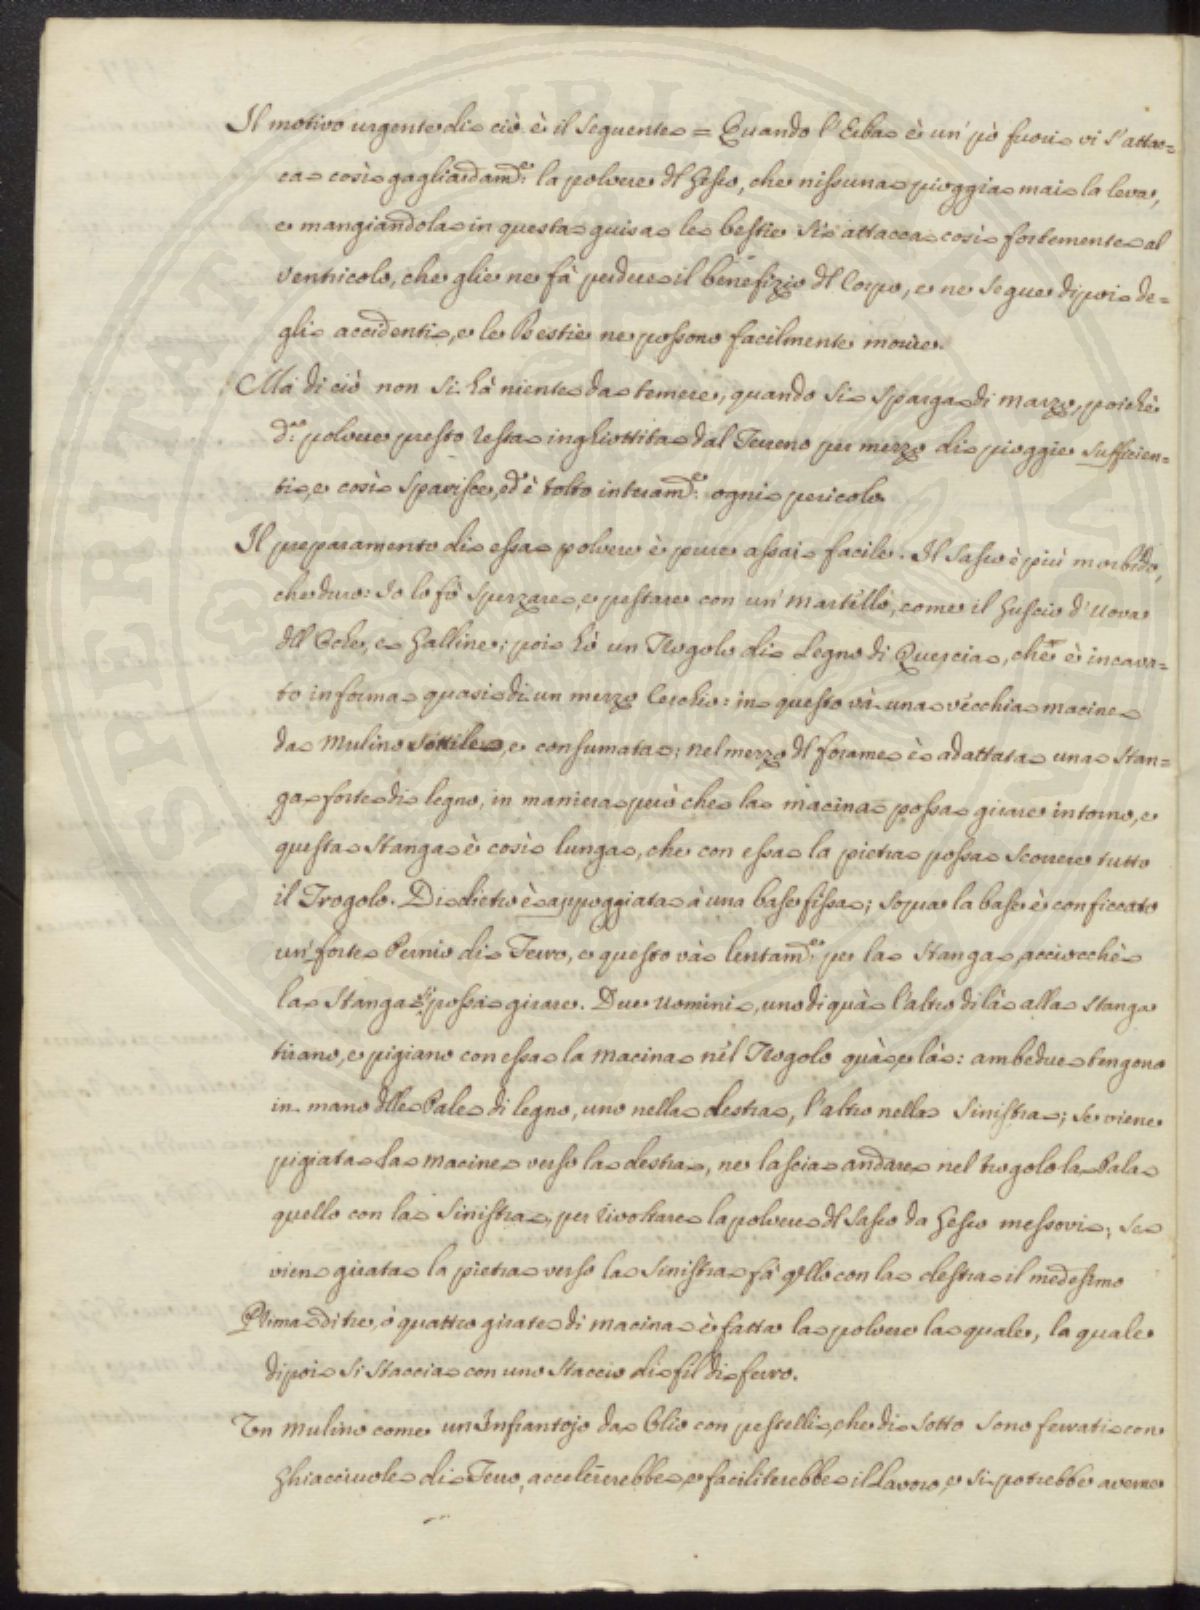 Il motivo urgente di ciò è il seguente = Quando l'Erba è un' pò fuori vi s'attac=
ca così gagliardam.e la polvere dl Gesso, che nissuna pioggia mai la leva,
e mangiandola in questa guisa le bestie si attacca così fortemente al
Ventricolo, che glie ne fà perdere il benefizio dl Corpo, e ne segue dipoi de=
gli accidenti, e le Bestie ne possono facilmente morire.
Mà di ciò non si hà niente da temere, quando si sparga di marzo, poichè
d.a polvere presto resta inghiottita dal Terreno per mezzo di pioggie sufficien=
ti, e così sparisce, ed è tolto interam.e ogni pericolo
Il preparamento di essa polvere è pure assai facile. Il Sasso è più morbido,
che duro: Io lo fò sperzare, e pestare con un' martello, come il Guscio d'Uova
dll Oche, e Galline; poi hò un Trogolo di Legno di Quercia, che è incava=
to in forma quasi di un mezzo Cerchio: in questo và una vecchia macine
da Mulino sottile, e consumata; nel mezzo dl forame è adattata una Stan=
ga forte di legno, in maniera però che la macina possa girare intorno, e
questa Stanga è così lunga, che con essa la pietra possa scorrere tutto
il Trogolo. Di dietro è appoggiata à una base fissa; sopra la base è conficcato
un' forte Pernio di Ferro, e questo và lentam.e per la Stanga, acciocchè
la Stanga si possa girare. Due uomini, uno di quà l'altro di là alla stanga
tirano, e pigiano con essa la macina nel Trogolo quà e là: ambedue tengono
in mano dlle Pale di legno, uno nella destra, l'altro nella Sinistra; se viene
pigiata la Macine verso la destra, ne lascia andare nel trogolo la Pala
quello con la Sinistra, per rivoltare la polvere dl Sasso da Gesso messovi; se
vien girata la pietra verso la Sinistra fà qllo con la destra il medesimo
Prima di tre, ò quattro girate di macina è fatta la polvere la quale, la quale
dipoi si staccia con uno Staccio di fil di ferro.
Un Mulino come un Infrantojo da Olio con pestelli, che di sotto sono ferrati con
Ghiacciuole di Ferro, accelererebbe, e faciliterebbe il lavoro, e si potrebbe averne